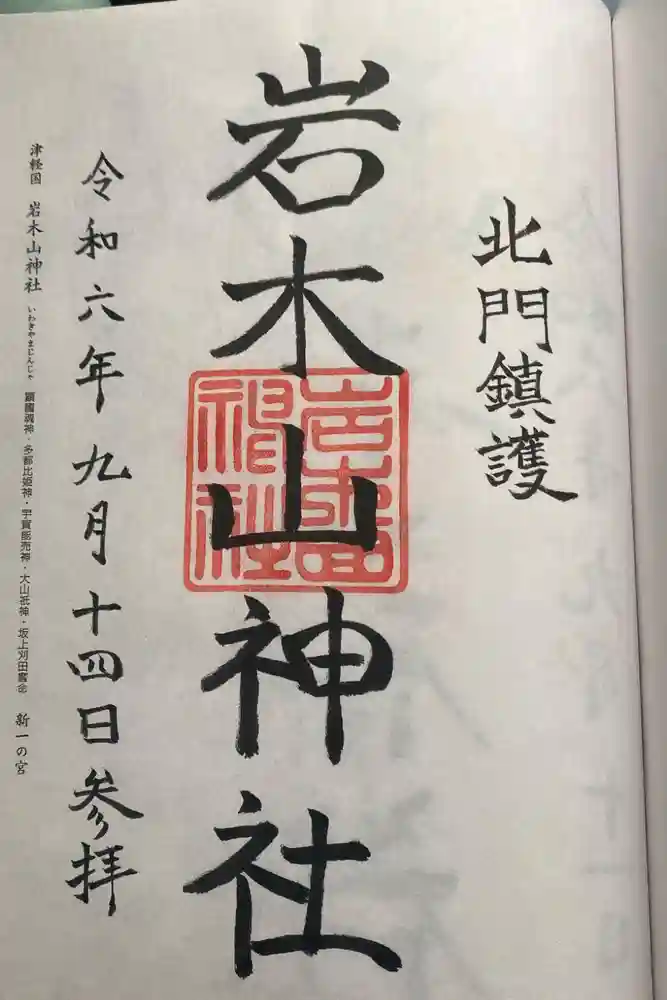 北門鎮護
岩木山神社
令和六年九月十四日参拝
津軽国 岩木山神社 いわきやまじんじゃ 顕國魂神・多都比姫神・宇賀能売神・大山祇神・坂上刈田麿命 新一の宮